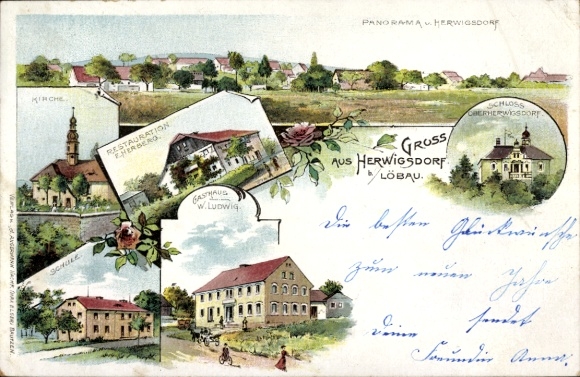 PANORAMA v. HERWIGSDORF
KIRCHE
RESTAURATION
F. HERBERG.
SCHLOSS
OBERHERWIGSDORF.
GRUSS
AUS HERWIGSDORF.
b/ LÖBAU.
GASTHAUS
W. LUDWIG.
SCHULE
Die besten Glückwünsche
zum neuen Jahre
sendet
Deine
Freundin Anna.